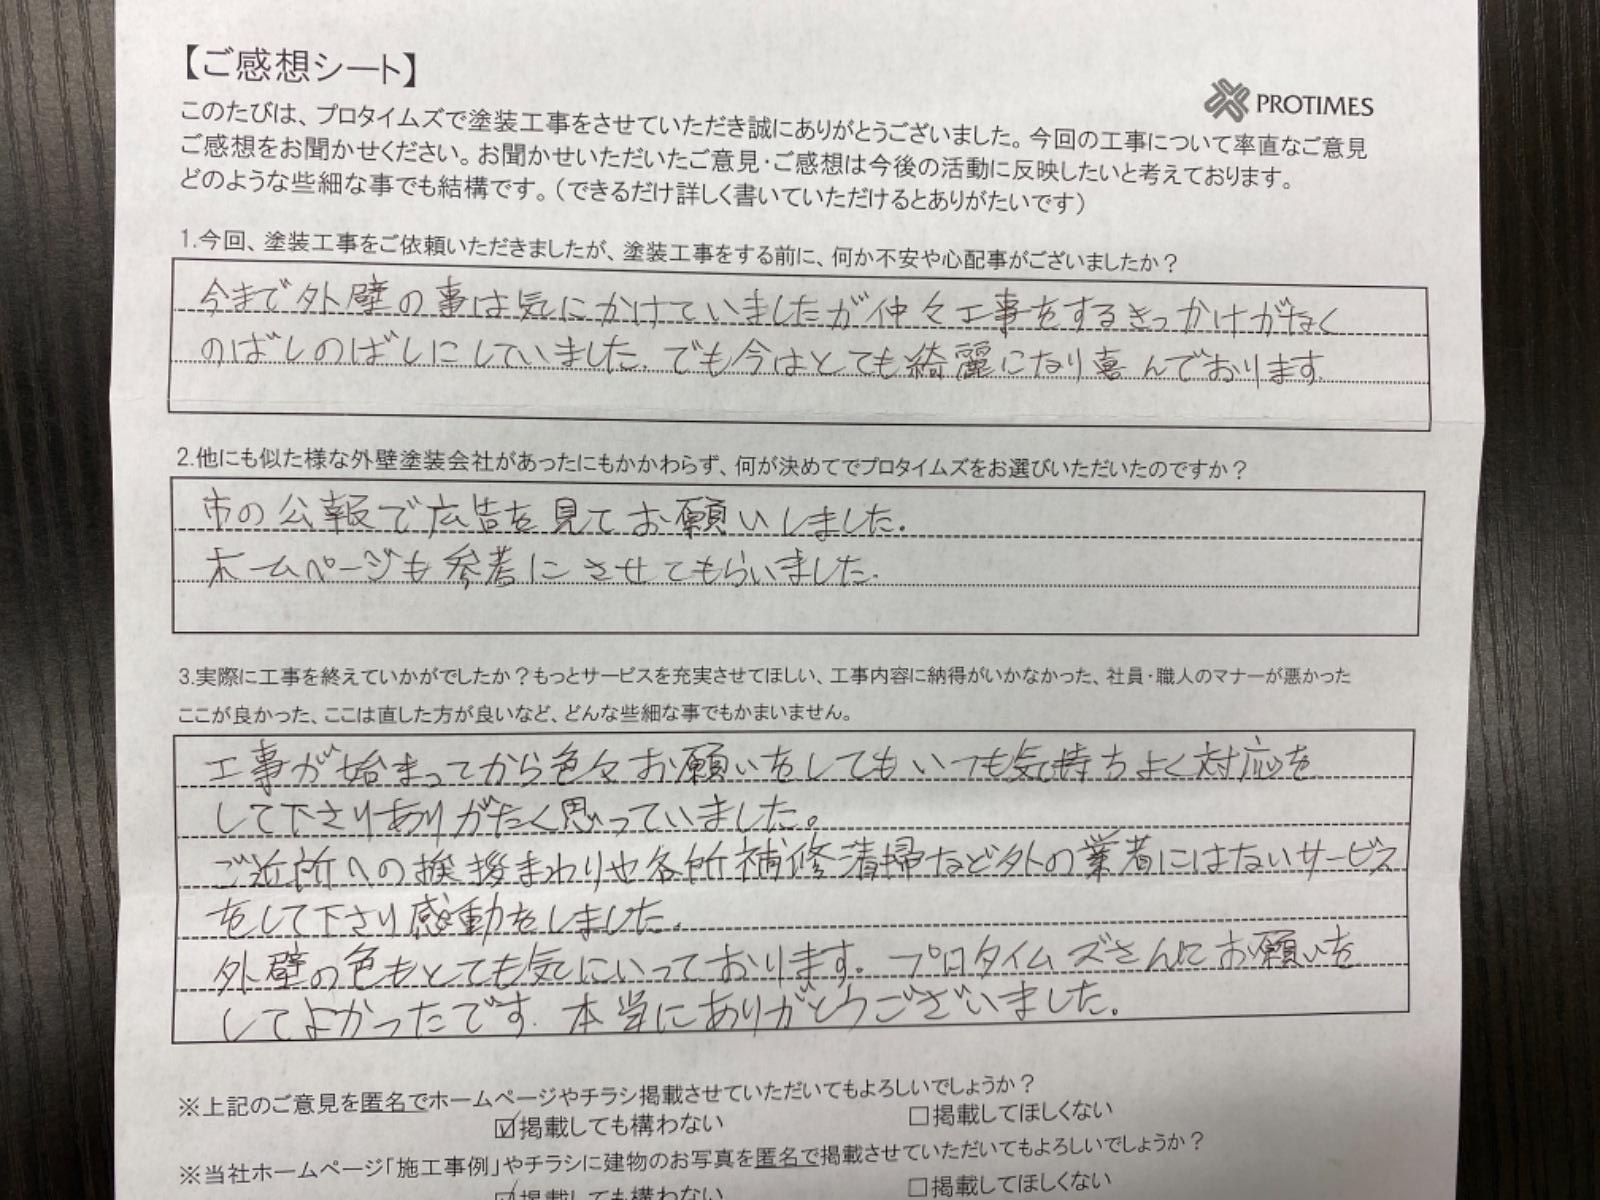 【ご感想シート】
PROTIMES
このたびは、プロタイムズで塗装工事をさせていただき誠にありがとうございました。今回の工事について率直なご意見
ご感想をお聞かせください。お聞かせいただいたご意見・ご感想は今後の活動に反映したいと考えております。
どのような些細な事でも結構です。(できるだけ詳しく書いていただけるとありがたいです)
1.今回、塗装工事をご依頼いただきましたが、塗装工事をする前に、何か不安や心配事がございましたか?
今まで外壁の事は気にかけていましたが仲々工事をするきっかけがなく
のばしのばしにしていました。でも今はとても綺麗になり喜んでおります。
2.他にも似た様な外壁塗装会社があったにもかかわらず、何が決めてでプロタイムズをお選びいただいたのですか?
市の公報で広告を見てお願いしました。
ホームページも参考にさせてもらいました。
3.実際に工事を終えていかがでしたか?もっとサービスを充実させてほしい、工事内容に納得がいかなかった、社員・職人のマナーが悪かった
ここが良かった、ここは直した方が良いなど、どんな些細な事でもかまいません。
工事が始まってから色々お願いをしてもいつも気持ちよく対応を
して下さりありがたく思っていました。
ご近所への挨拶まわりや各所補修清掃など外の業者にはないサービス
をして下さり感動をしました。
外壁の色もとても気にいっております。プロタイムズさんにお願いを
してよかったです。本当にありがとうございました。
※上記のご意見を匿名でホームページやチラシ掲載させていただいてもよろしいでしょうか?
☑掲載しても構わない □掲載してほしくない
※当社ホームページ「施工事例」やチラシに建物のお写真を匿名で掲載させていただいてもよろしいでしょうか?
☑掲載しても構わない □掲載してほしくない